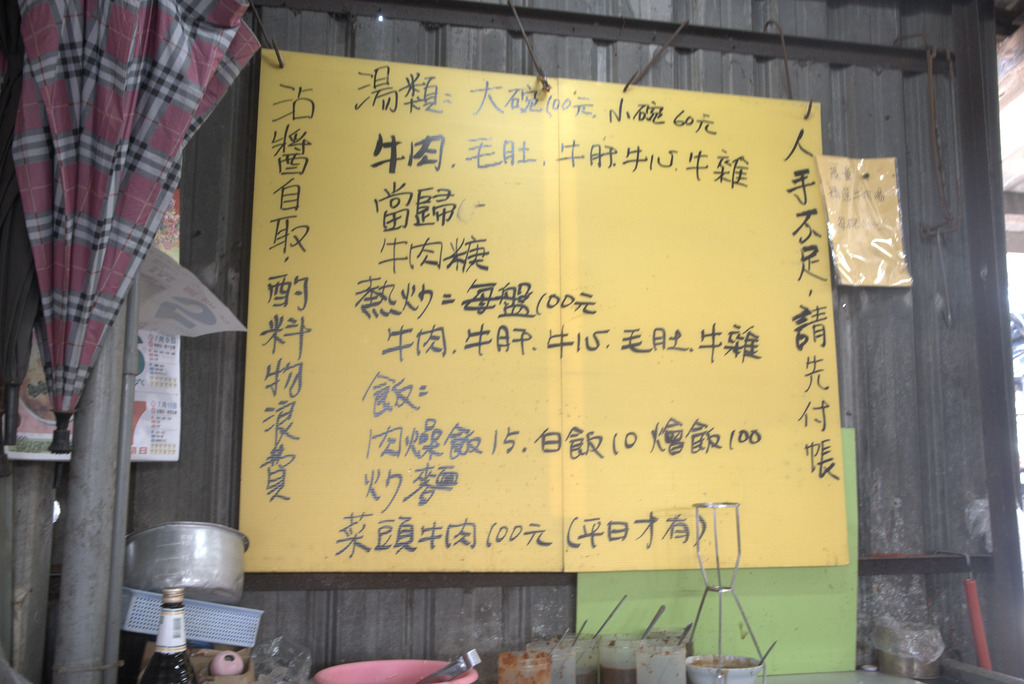 人手不足,請先付帳
湯類:大碗100元,小碗60元
牛肉.毛肚.牛肝.牛心.牛雜
當歸
牛肉糖
熱炒=每盤100元
牛肉.牛肝.牛心.毛肚.牛雜
飯:
肉燥飯15.白飯10 燴飯100
炒麵
菜頭牛肉100元(平日才有)
沾醬自取,酌料物浪費